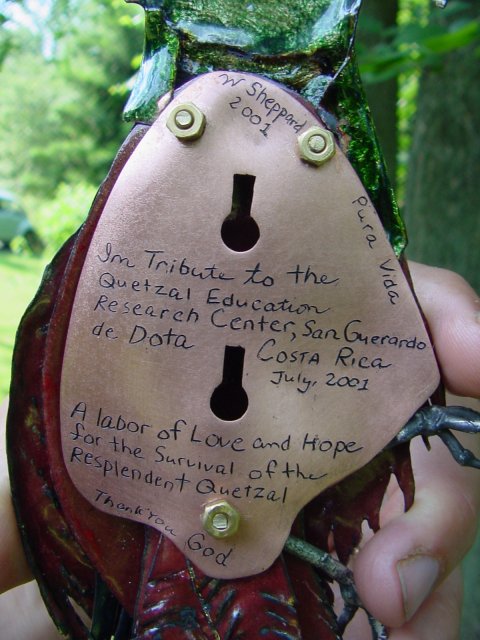 W Sheppard
2001
Pura Vida
Im Tribute to the
Quetzal Education
Research Center, San Guerardo
de Dota
Costa Rica
July, 2001
A labor of Love and Hope
for the Survival of the
Resplendent Quetzal
Thank You
God